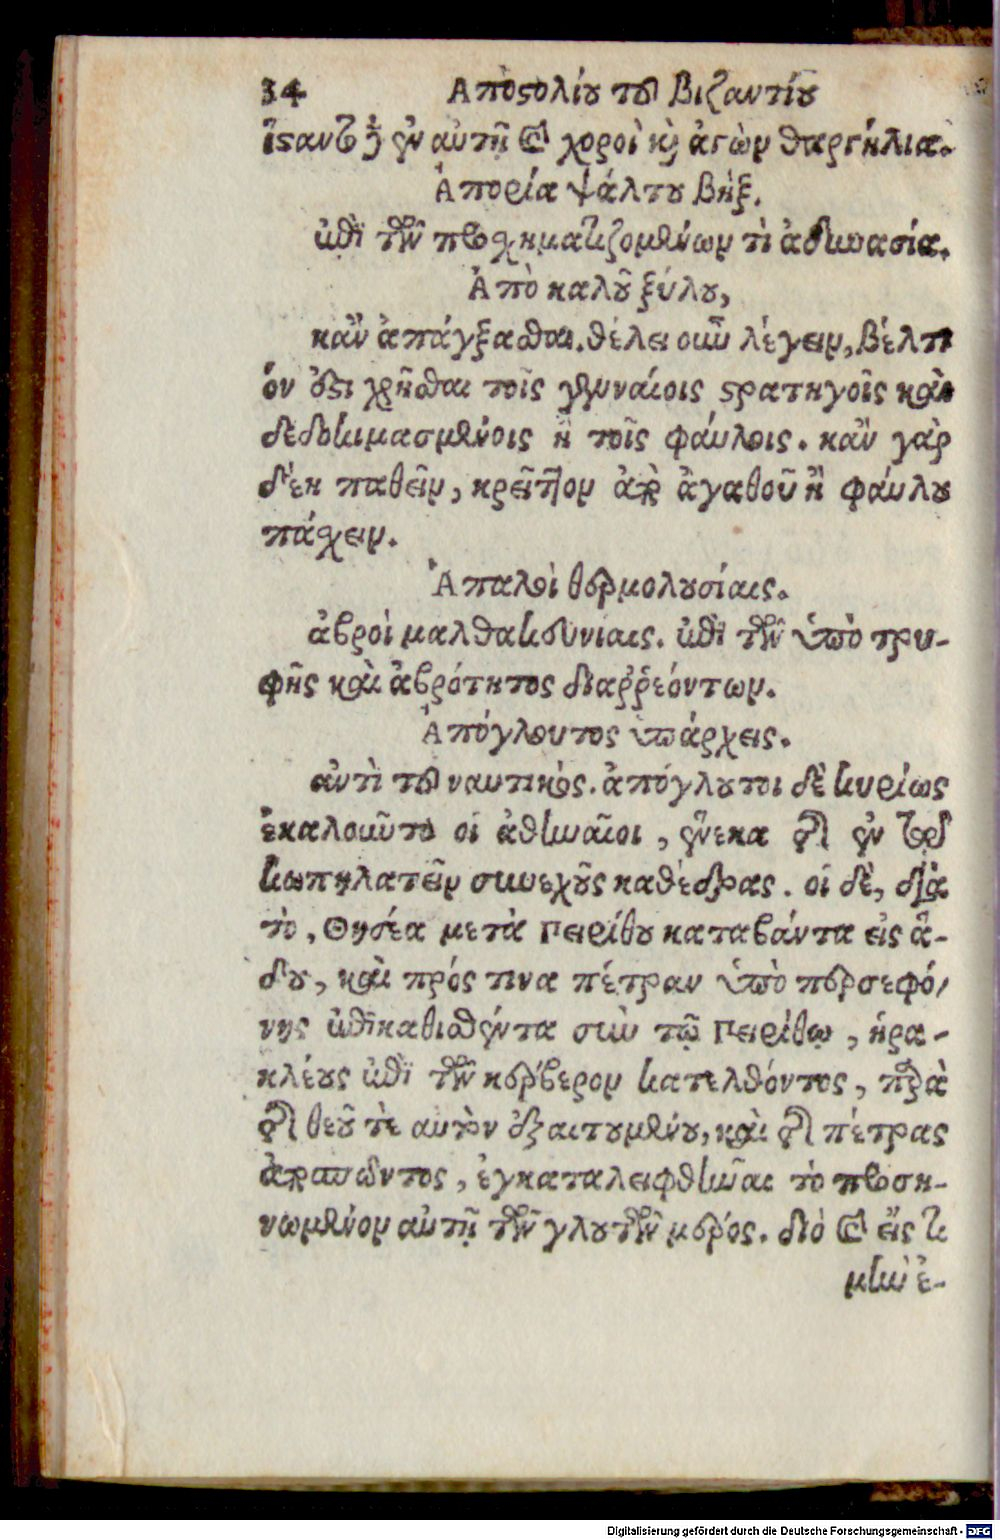 34 Αποστολίου του βιζαντίου
ἵσαντο δὲ ἐν αὐτῇ καὶ χοροὶ καὶ ἀγὼν θαργήλια.
Ἀπορία ψάλτου βήξ.
ἐπὶ τῶν προσχηματιζομένων τὶ ἀδυνασία.
Ἀπὸ καλοῦ ξύλου,
κἂν ἀπάγξασθαι. θέλει οὖν λέγειν, βέλτι
όν ἐστι χρῆσθαι τοῖς γενναίοις στρατηγοῖς καὶ
δεδοκιμασμένοις ἢ τοῖς φαύλοις. κἂν γὰρ
δέῃ παθεῖν, κρεῖττον παρὰ ἀγαθοῦ ἢ φαύλου
πάσχειν.
Ἁπαλοὶ θερμολουσίαις.
ἁβροὶ μαλθακευνίαις. ἐπὶ τῶν ὑπὸ τρυ-
φῆς καὶ ἁβρότητος διαῤῥεόντων.
Ἀπόγλουτος ὑπάρχεις.
ἀντὶ τοῦ ναυτικός. ἀπόγλουτοι δὲ κυρίως
ἐκαλοῦντο οἱ ἀθηναῖοι, ἕνεκα τῆς ἐν τῷ
κωπηλατεῖν συνεχοῦς καθέδρας. οἱ δὲ, διὰ
τὸ, Θησέα μετὰ Πειρίθου καταβάντα εἰς ἅ-
δου, καὶ πρός τινα πέτραν ὑπὸ περσεφό-
νης ἐπικαθισθέντα σὺν τῷ Πειρίθῳ, ἡρα-
κλέους ἐπὶ τὸν κέρβερον κατελθόντος, παρὰ
τῆς θεοῦ τὲ αὐτὸν ἐξαιτουμένου, καὶ τῆς πέτρας
ἀποσπῶντος, ἐγκαταλειφθῆναι τὸ προση-
νωμένον αὐτῇ τῶν γλουτῶν μέρος. διὸ καὶ εἰς τι
μὴν ἐ-
Digitalisierung gefördert durch die Deutsche Forschungsgemeinschaft - DFG